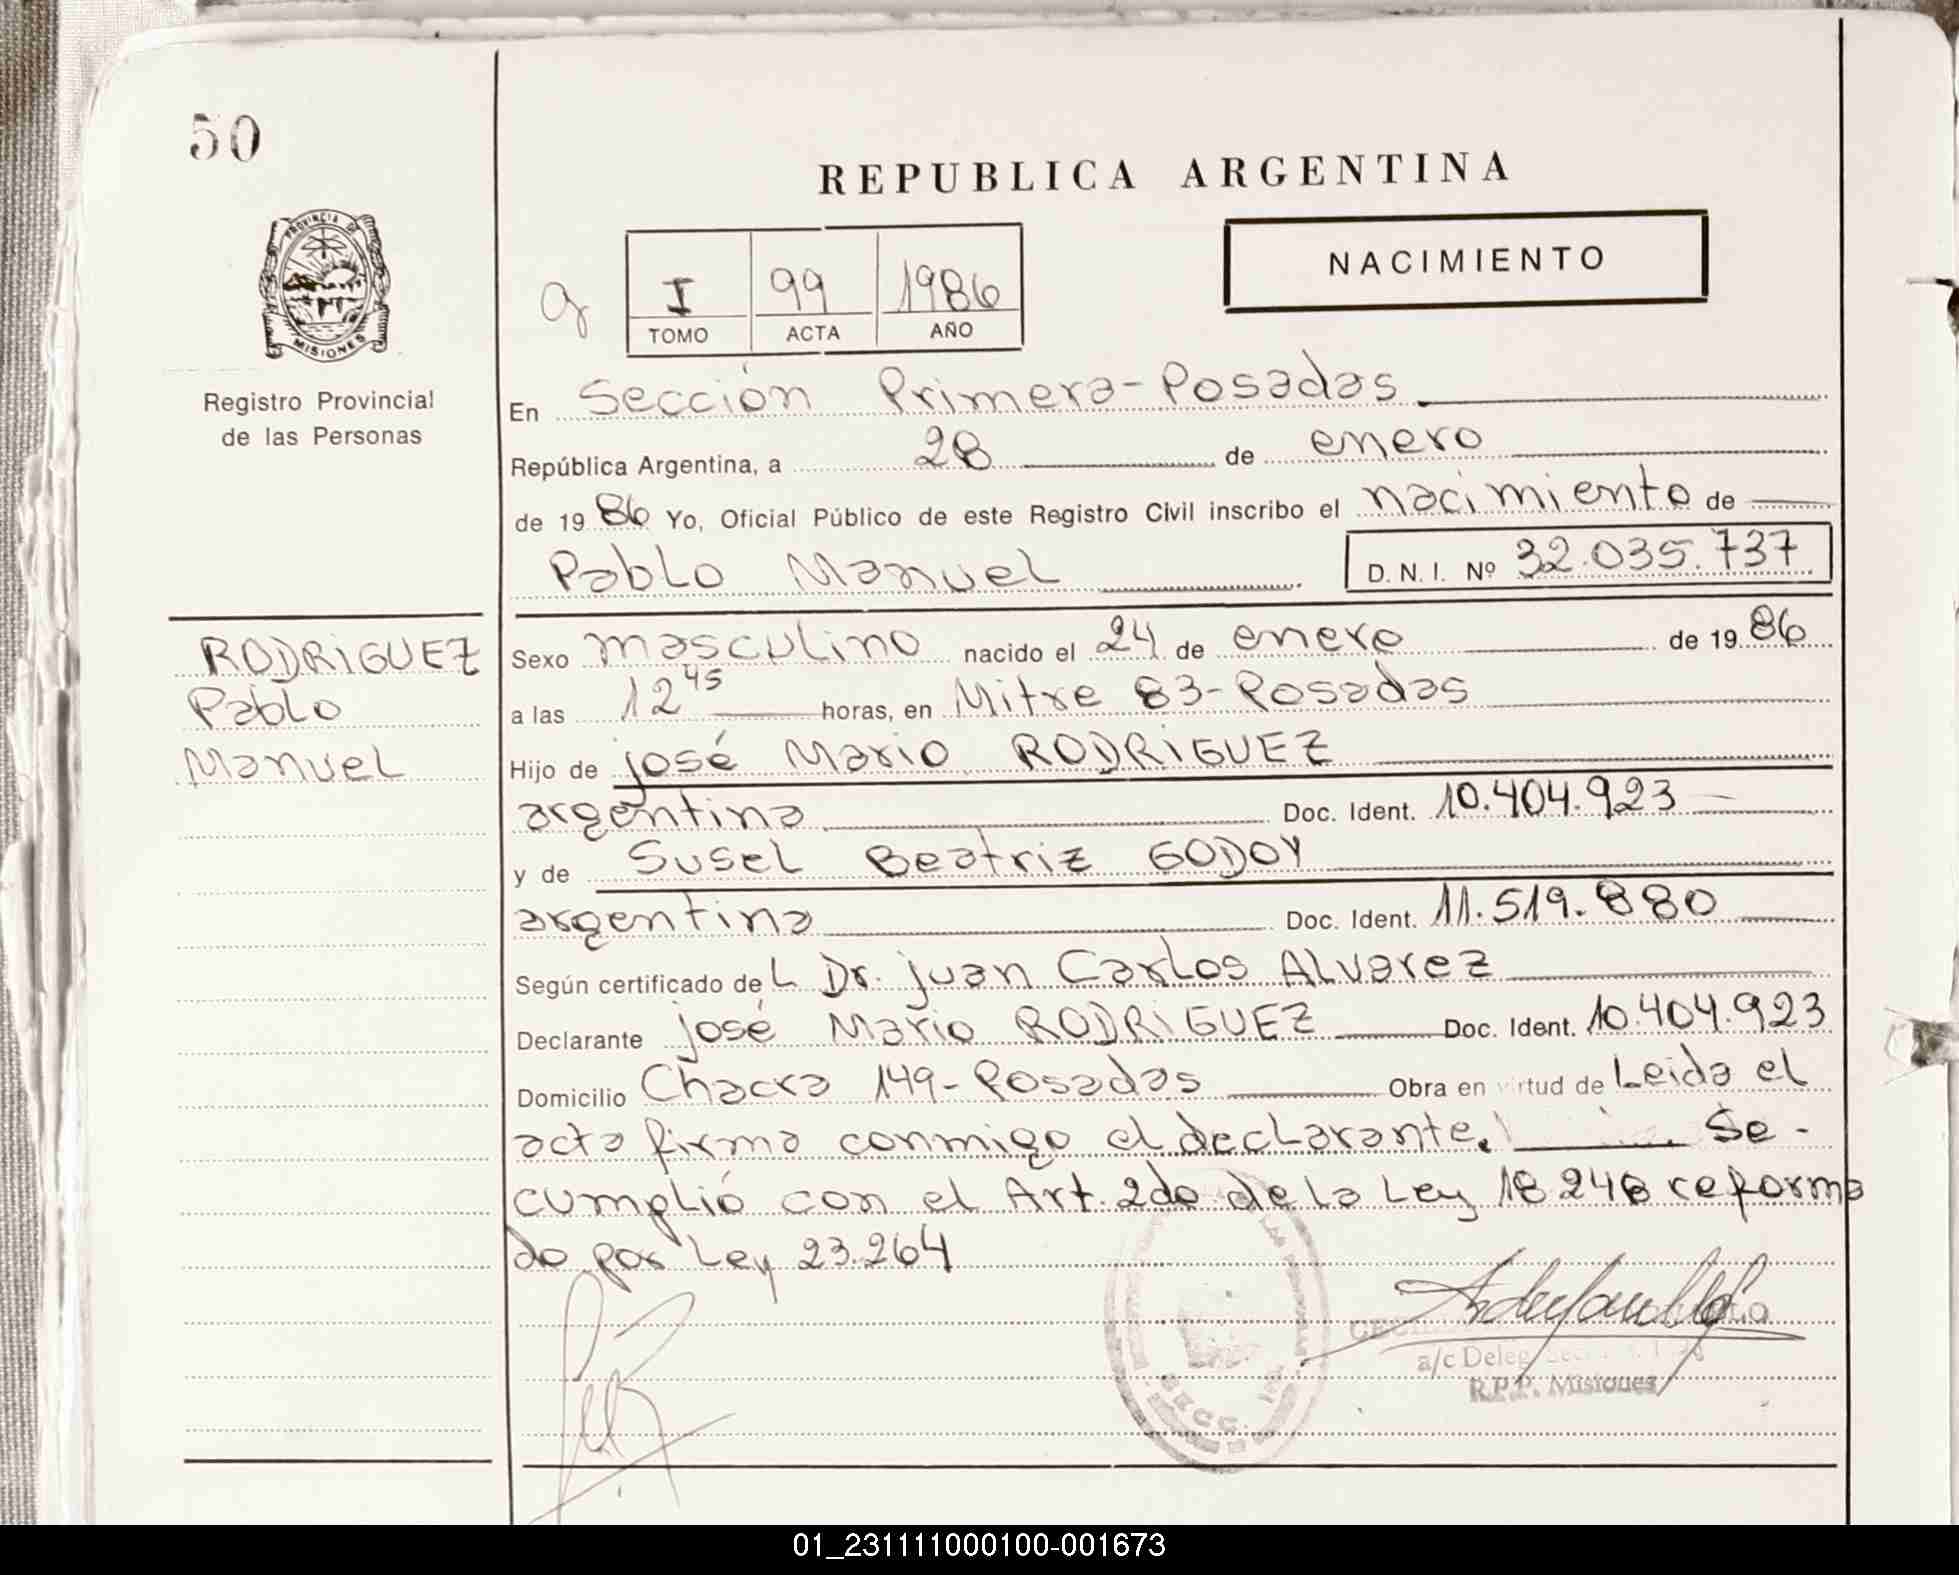 50
REPUBLICA ARGENTINA
PROVINCIA DE
MISIONES
NACIMIENTO
g I 99 1986
TOMO ACTA AÑO
Registro Provincial
de las Personas
En Sección Primera-Posadas
República Argentina, a 28 de enero
de 19 86 Yo, Oficial Público de este Registro Civil inscribo el nacimiento de
Pablo Manuel D.N.I. Nº 32.035.737
RODRIGUEZ
Pablo
Manuel
Sexo masculino nacido el 24 de enero de 19 86
a las 12 45 horas, en Mitre 83-Posadas
Hijo de josé Mario RODRIGUEZ
argentina Doc. Ident. 10.404.923
y de Susel Beatriz GODOY
argentina Doc. Ident. 11.519.880
Según certificado del Dr. juan Carlos Alvarez
Declarante josé Mario RODRIGUEZ Doc. Ident. 10.404.923
Domicilio Chacra 149-Posadas Obra en virtud de Leida el
acta firma conmigo el declarante. Se
cumplió con el Art. 2do de la Ley 18248 reforma
do por Ley 23.264
a/c Deleg
R.P.P. Misiones
SECC. 1ra
01_231111000100-001673